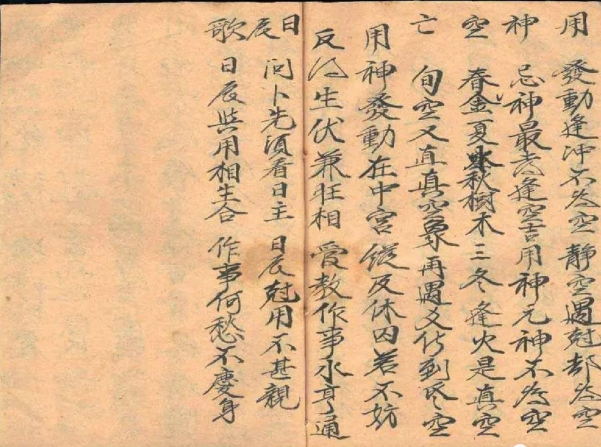 用 發動逢冲不為空 静空遇尅却為空
神 忌神最喜逢空吉用神元神不為空
空 春金夏水秋樹木三冬逢火是真空
亡 旬空又直真空象再遇爻到空
用神發動在中宮縱反休囚若不妨
反得生伏兼狂相 受教作事永亨通
日辰 問卜先須看日主 日辰尅用不甚親
歌 日辰與用相生合 作事何愁不慶身